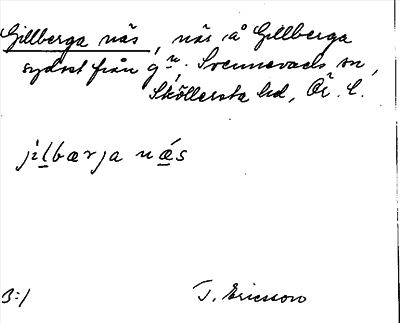 Gillberga näs, näs å Gillberga
sydost från gn. Svennevads sn,
Sköllersta hd, Ör. l.
jilbærja nǽs
B:1
T. Ericsson